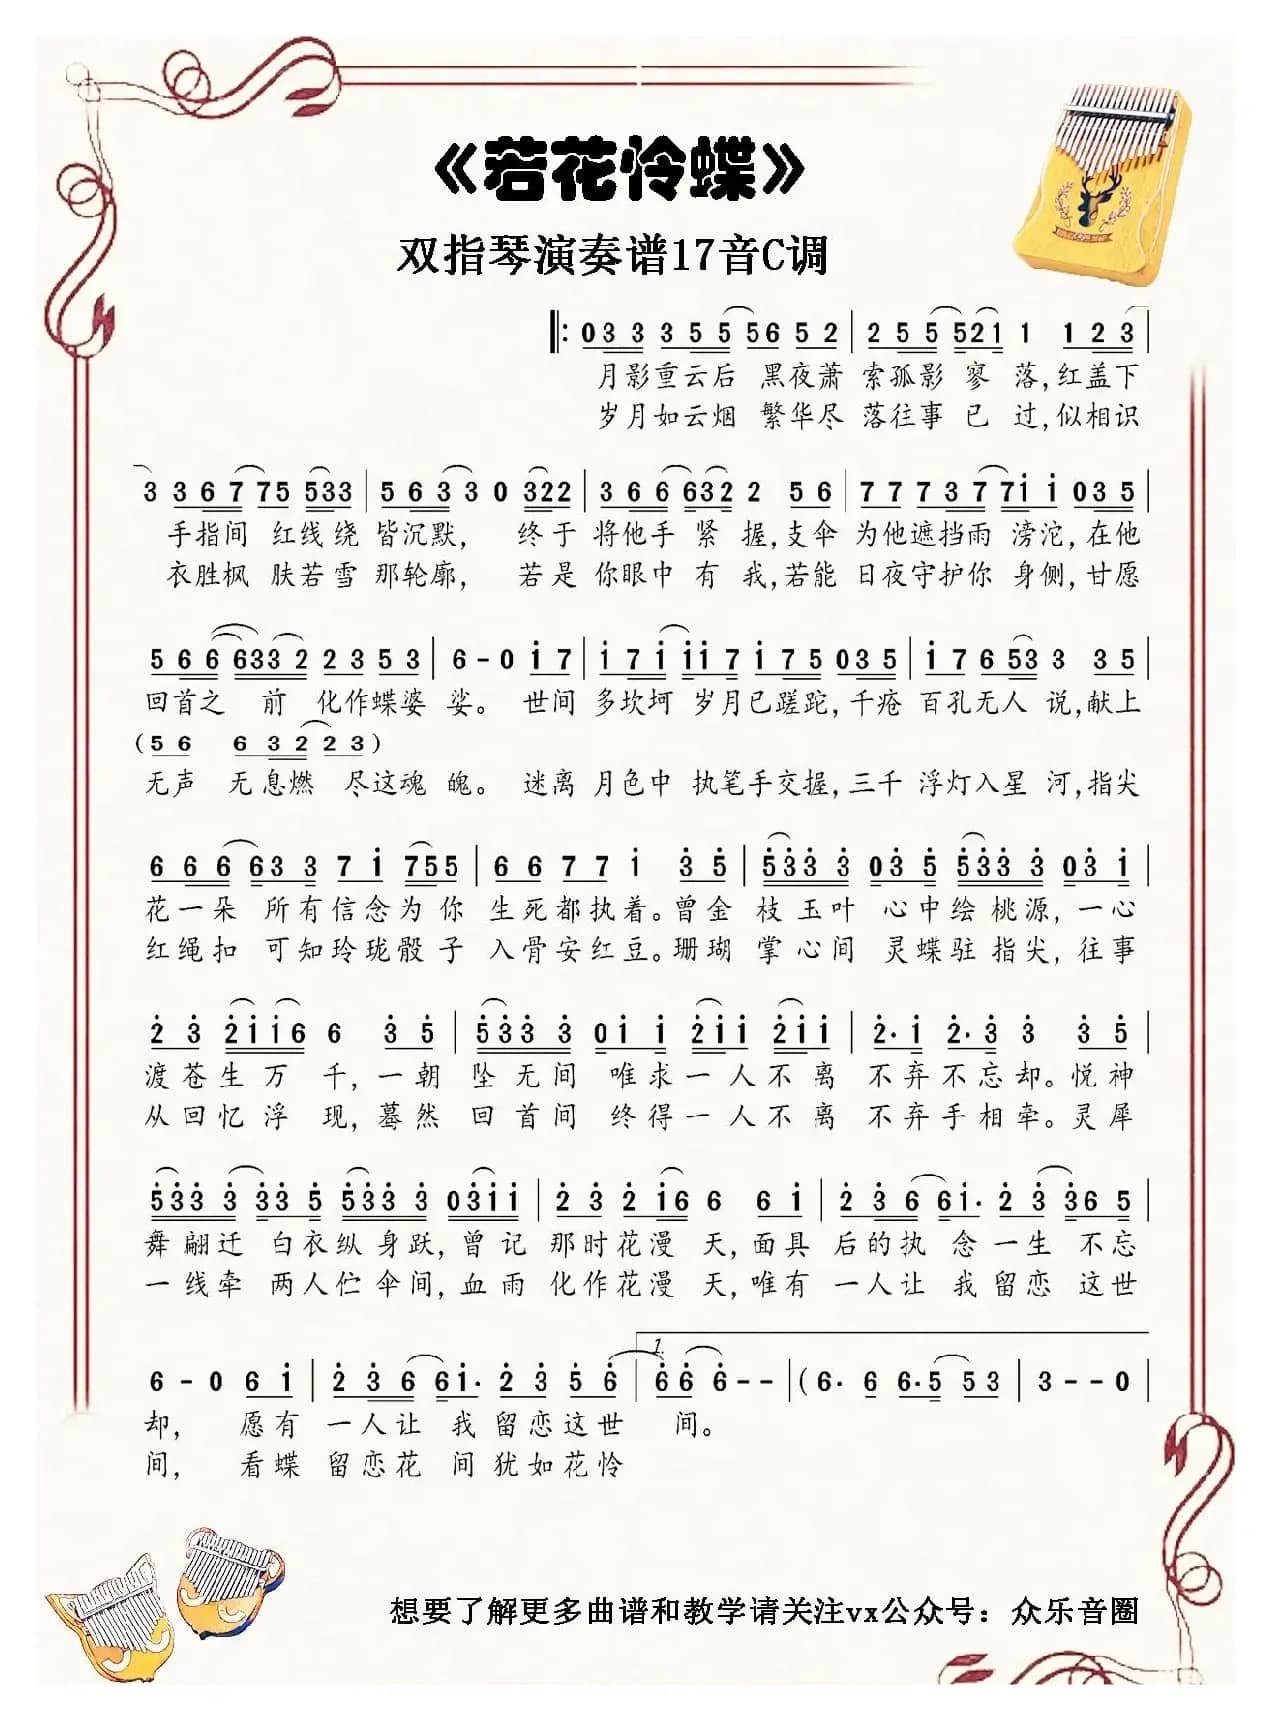 《若花怜蝶》
双指琴演奏谱17音C调
‖: 0 3 3 3 5 5 5 6 5 2 | 2 5 5 5 2 1 1 1 2 3 |
月影重云后 黑夜萧 索孤影 寥 落,红盖下
岁月如云烟 繁华尽 落往事 已 过,似相识
3 3 6 7 7 5 5 3 3 | 5 6 3 3 0 3 2 2 | 3 6 6 6 3 2 2 5 6 | 7 7 7 3 7 7 i i 0 3 5 |
手指间 红线绕 皆沉默, 终于 将他手 紧 握,支伞 为他遮挡雨 滂沱,在他
衣胜枫 肤若雪 那轮廓, 若是 你眼中 有 我,若能 日夜守护你 身侧,甘愿
5 6 6 6 3 3 2 2 3 5 3 | 6 - 0 i 7 | i 7 i i i 7 i 7 5 0 3 5 | i 7 6 5 3 3 3 5 |
回首之 前 化作蝶婆 娑。 世间 多坎坷 岁月已蹉跎,千疮 百孔无人 说,献上
(5 6 6 3 2 2 3)
无声 无息燃 尽这魂 魄。 迷离 月色中 执笔手交握,三千 浮灯入星 河,指尖
6 6 6 6 3 3 7 i 7 5 5 | 6 6 7 7 i 3 5 | 5 3 3 3 0 3 5 5 3 3 3 0 3 i |
花一朵 所有信念为你 生死都执着。曾金 枝玉叶 心中绘桃源, 一心
红绳扣 可知玲珑骰子 入骨安红豆。珊瑚 掌心间 灵蝶驻指尖, 往事
2 3 2 i i 6 6 3 5 | 5 3 3 3 0 i i 2 i i 2 i i | 2· i 2· 3 3 3 5 |
渡苍生万 千,一朝 坠无间 唯求一人不离 不弃不忘却。悦神
从回忆浮 现,蓦然 回首间 终得一人不离 不弃手相牵。灵犀
5 3 3 3 3 3 5 5 3 3 3 0 3 i i | 2 3 2 i 6 6 6 i | 2 3 6 6 i· 2 3 3 6 5 |
舞翩迁 白衣纵身跃,曾记 那时花漫 天,面具 后的执 念一生 不忘
一线牵 两人伫伞间,血雨 化作花漫 天,唯有 一人让 我留恋 这世
6 - 0 6 i | 2 3 6 6 i· 2 3 5 6 | 1. 6 6 6 - - | (6· 6 6· 5 5 3 | 3 - - 0 |
却, 愿有 一人让 我留恋这世 间。
间, 看蝶 留恋花 间犹如花怜
想要了解更多曲谱和教学请关注vx公众号：众乐音圈